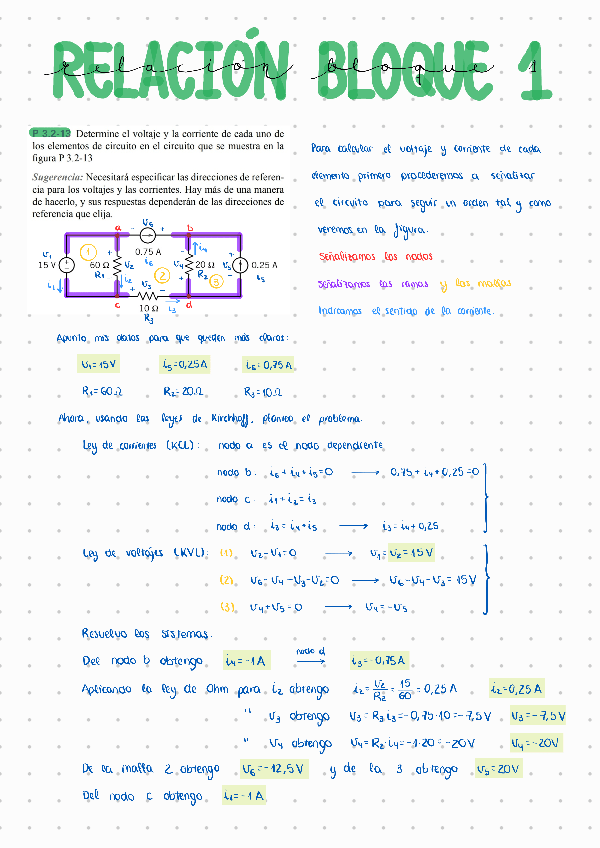 RELACIÓN BLOQUE 1
relación bloque 1
P 3.2-13 Determine el voltaje y la corriente de cada uno de
los elementos de circuito en el circuito que se muestra en la
figura P 3.2-13
Sugerencia: Necesitará especificar las direcciones de referen-
cia para los voltajes y las corrientes. Hay más de una manera
de hacerlo, y sus respuestas dependerán de las direcciones de
referencia que elija.
Para calcular el voltaje y corriente de cada
elemento primero procederemos a señalizar
el circuito para seguir un orden tal y como
veremos en la figura.
Señalizamos los nodos
Señalizamos las ramas y las mallas
Indicamos el sentido de la corriente.
a - V6 + b
V1 15 V + - i1
1 60 Ω R1 + V2 - i2
0.75 A i6 2
V4 20 Ω R2 i4
3 V5 + - 0.25 A i5
c + V3 - d
10 Ω i3
R3
Apunto mis datos para que queden más claros:
V1=15V i5=0,25A i6=0,75A
R1=60Ω R2=20Ω R3=10Ω
Ahora, usando las leyes de Kirchhoff, planteo el problema.
Ley de corrientes (KCL): nodo a es el nodo dependiente
nodo b: i6+i4+i5=0 → 0,75+i4+0,25=0
nodo c: i1+i2=i3
nodo d: i3=i4+i5 → i3=i4+0,25
Ley de voltajes (KVL): (1) V2-V1=0 → V1=V2=15V
(2) V6-V4-V3-V2=0 → V6-V4-V3=15V
(3) V4+V5=0 → V4=-V5
Resuelvo los sistemas.
Del nodo b obtengo i4=-1A nodo d → i3=-0,75A
Aplicando la ley de Ohm para i2 obtengo i2=V2/R2=15/60=0,25A i2=0,25A
" V3 obtengo V3=R3·i3=-0,75·10=-7,5V V3=-7,5V
" V4 obtengo V4=R2·i4=-1·20=-20V V4=-20V
De la malla 2 obtengo V6=-12,5V y de la 3 obtengo V5=20V
Del nodo c obtengo i1=-1A